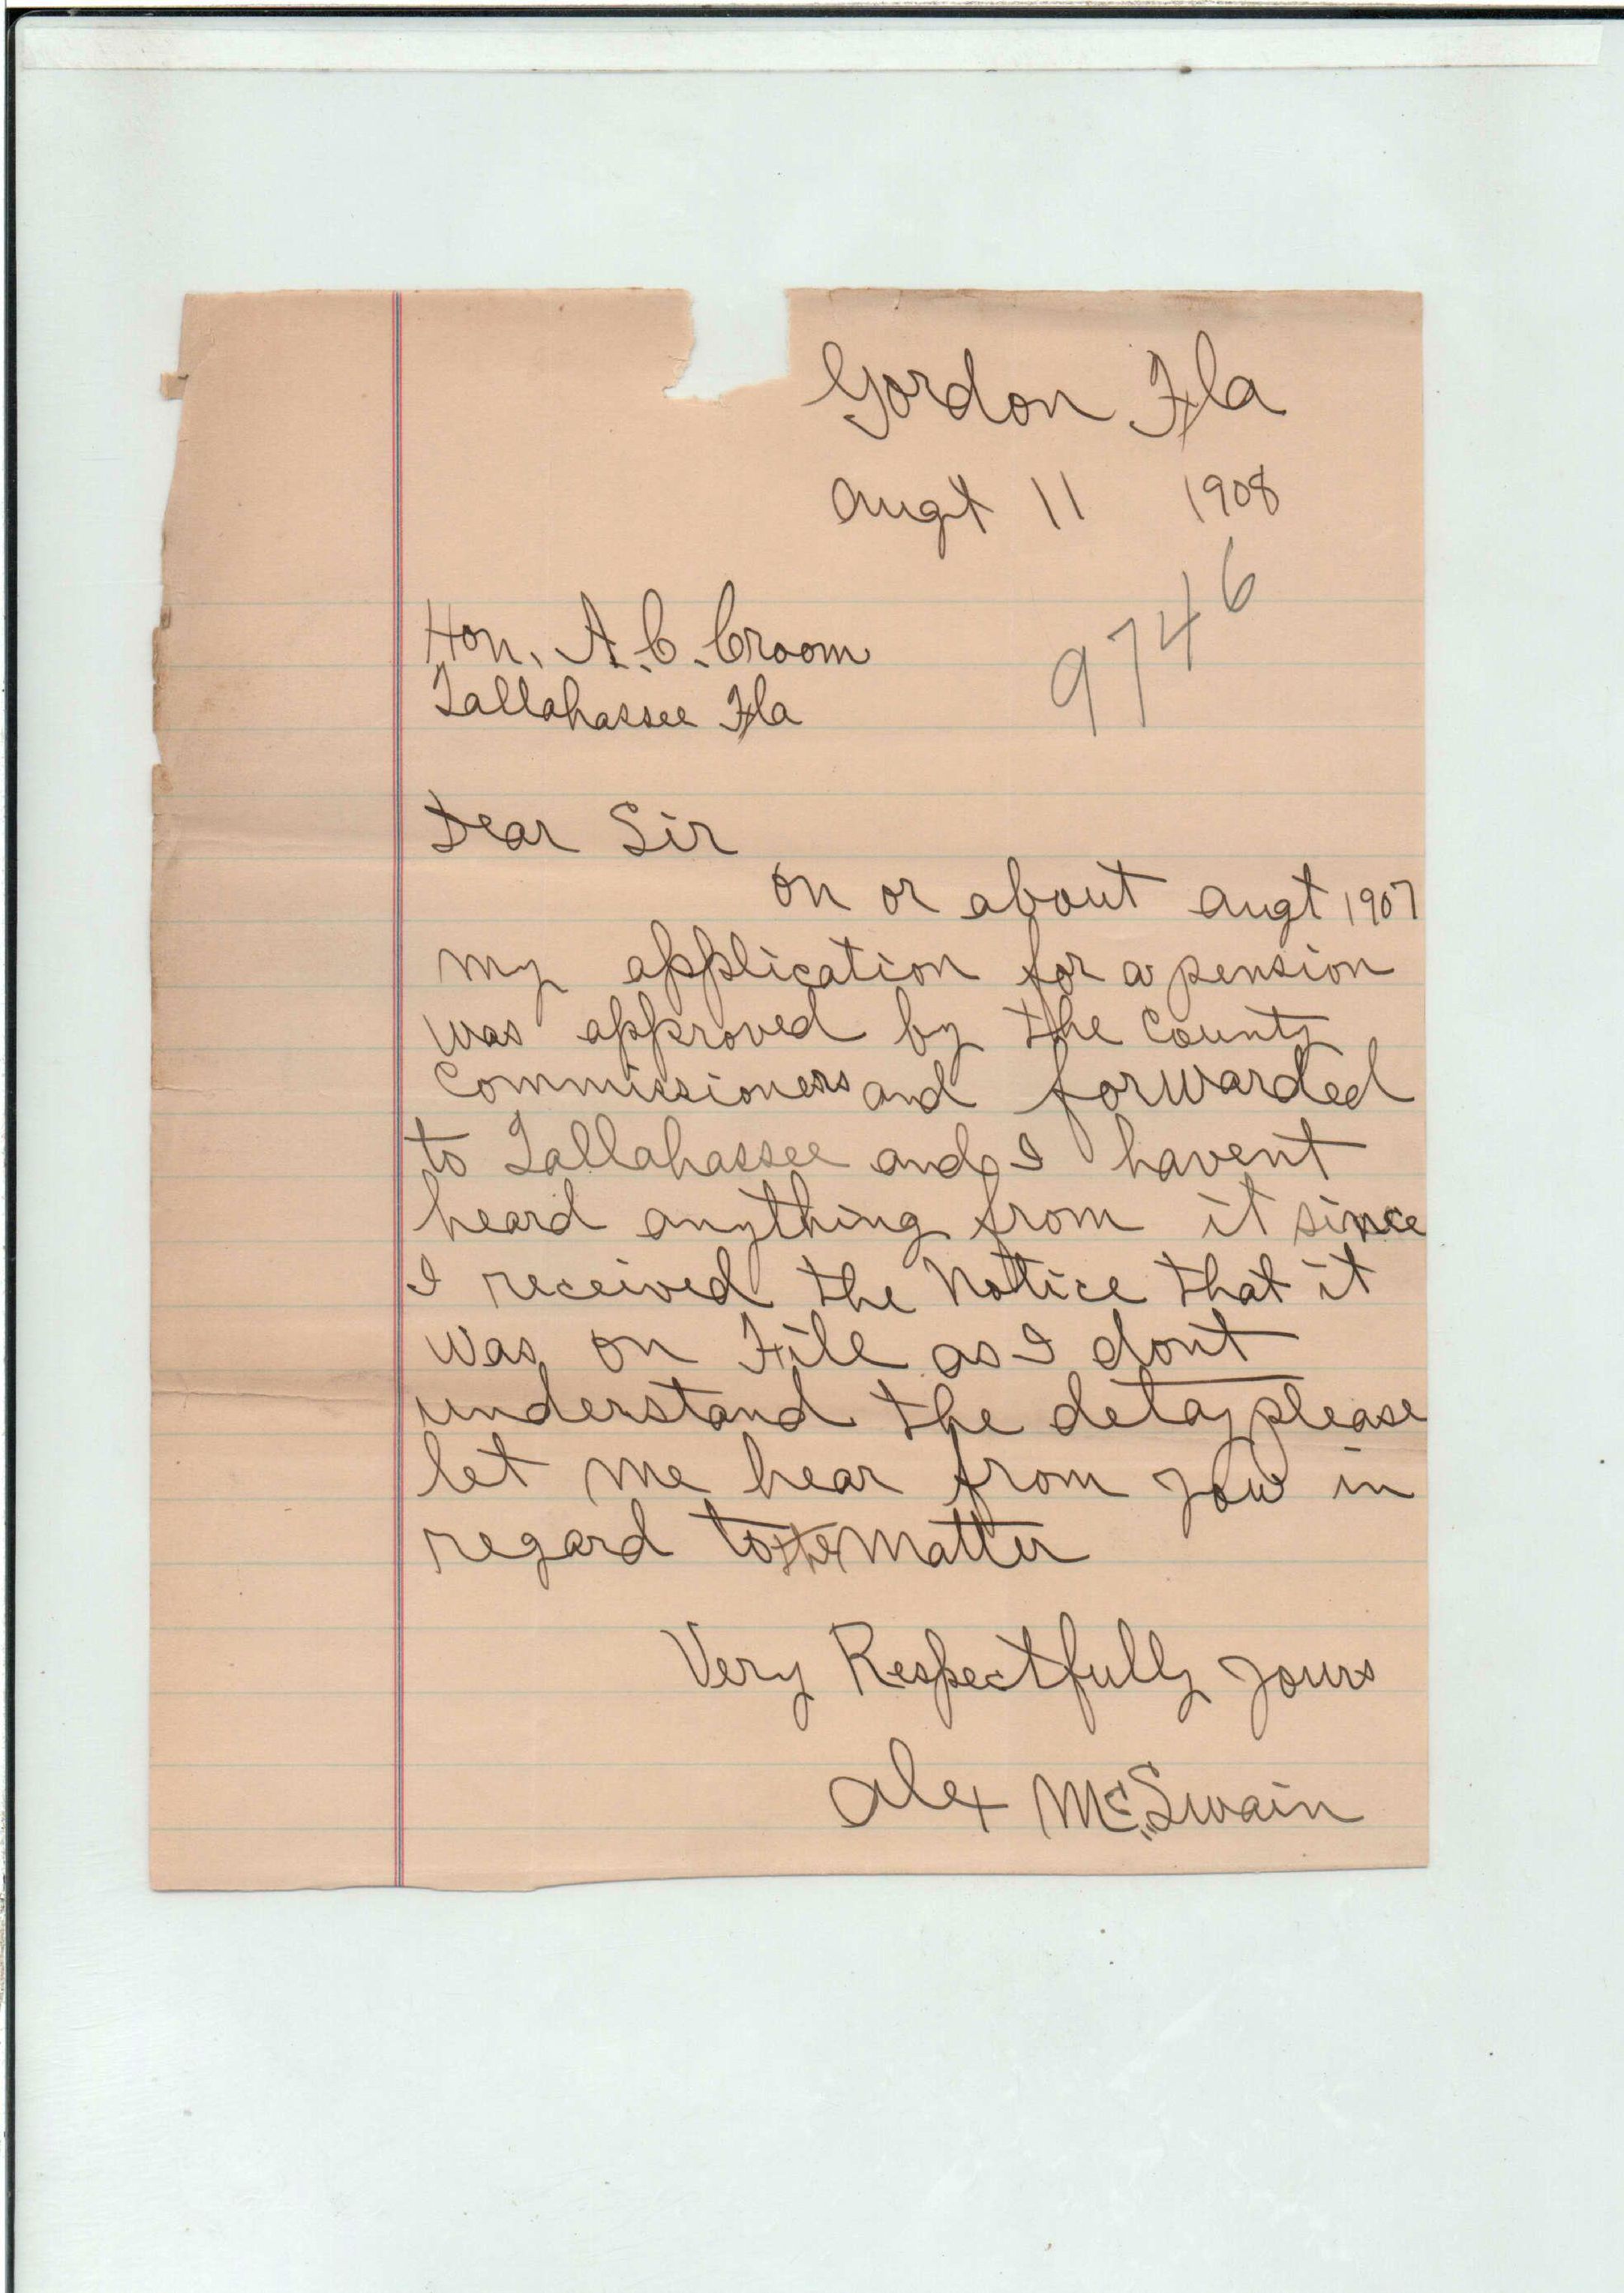 Gordon Fla
Augt 11 1908
9746
Hon. A. C. Croom
Tallahassee Fla
Dear Sir
on or about Augt 1907
my application for a pension
was approved by the County
Commissioners and forwarded
to Tallahassee and I havent
heard anything from it since
I received the Notice that it
was on File as I dont
understand the delay please
let me hear from you in
regard to the matter
Very Respectfully yours
Alex McSwain